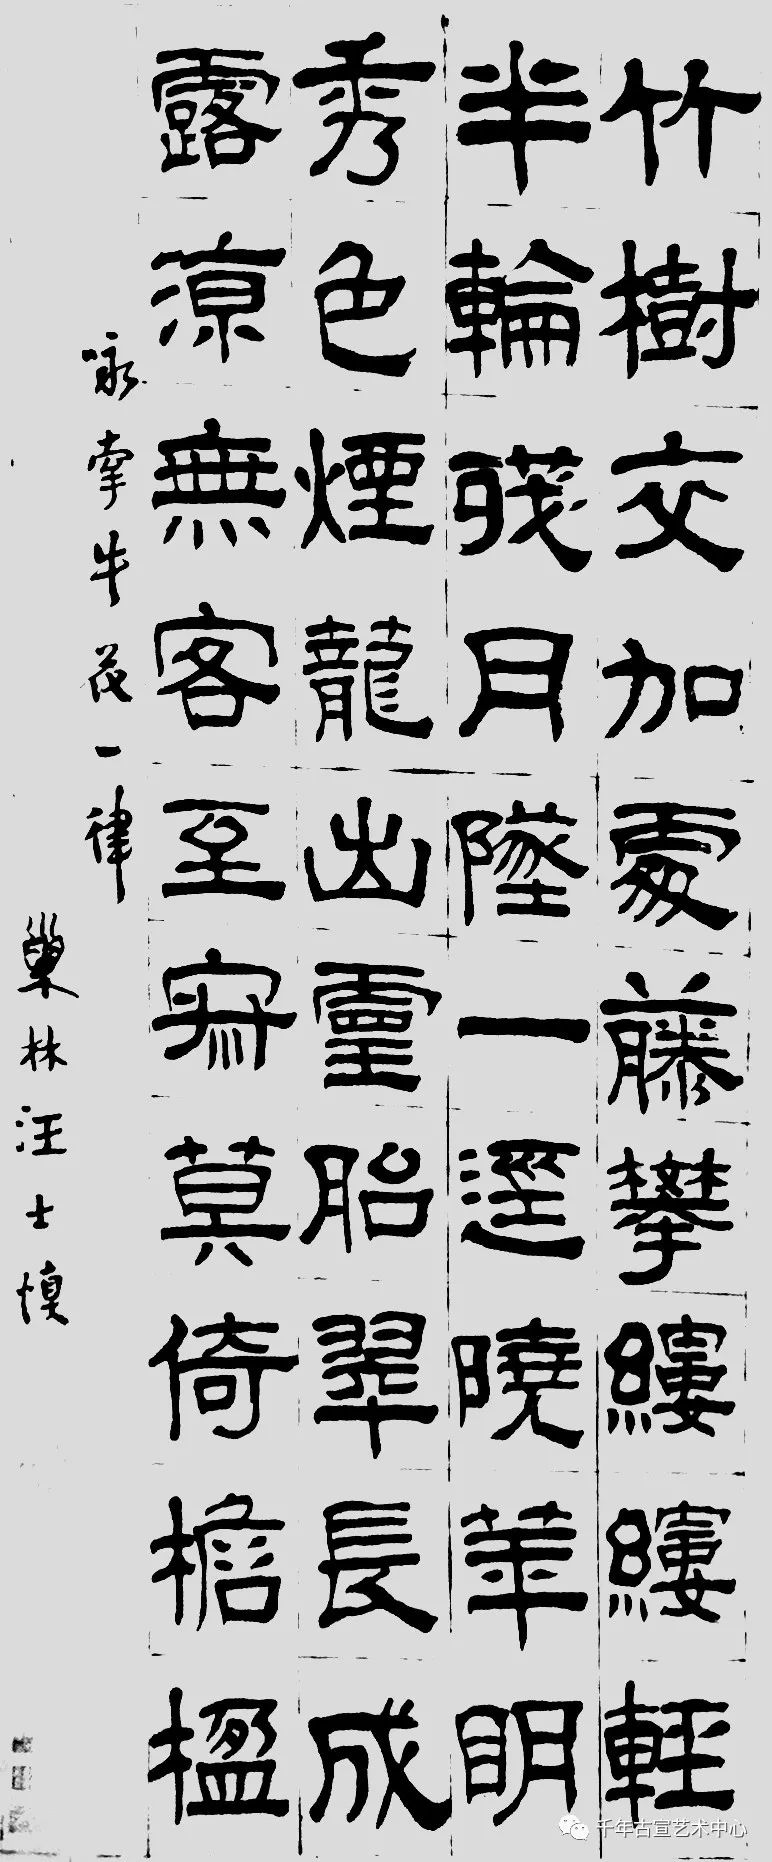 竹樹交加處藤攀縷縷輕
半輪殘月墜一逕曉華明
秀色煙籠出靈胎翠長成
露涼無客至寂莫倚檐楹
咏牽牛花一律
巢林汪士慎
千年古宣艺术中心